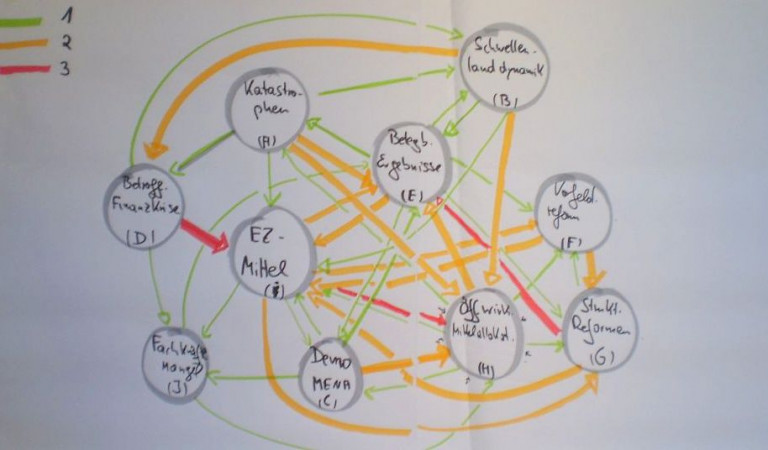 1
2
3
Schwellen-
landdynamik
(B)
Katastro-
phen
(A)
Belegb.
Ergebnisse
(E)
Betroff.
Finanzkrise
(D)
Vorfeld-
reform
(F)
EZ-
Mittel
Öff.wirk.
(H)
Strukt.
Reformen
(G)
Fachkräfte
mangel
(J)
Demo
MENA
(C)